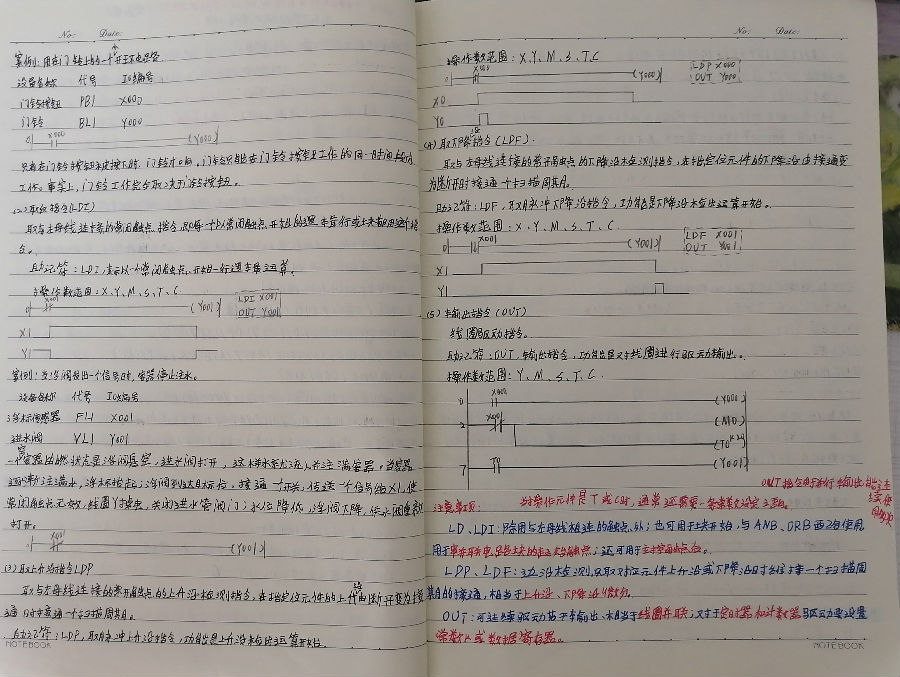 No: Date:
案例:用在门铃上的一个开环电路
设备名称 代号 IO编号
门铃按钮 PB1 X000
门铃 BL1 Y000
0 X000 (Y000)
只有在门铃按钮未被按下时,门铃才响,门铃只能在门铃按钮工作的同一时间
工作。事实上,门铃工作完全取决于门铃按钮。
(2)取反指令(LDI)
取与左母线连接的常闭触点指令,即每一个以常闭触点开始的逻辑行或块都用这个指
令。
助记符:LDI,表示以一个常闭触点开始一行逻辑运算。
操作数范围:X、Y、M、S、T、C
0 X001 (Y001) LDI X001
OUT Y001
X1
Y1
案例:当浮阀给出一个信号时,容器停止注水。
设备名称 代号 IO编号
浮标传感器 FL1 X001
进水阀 VL1 Y001
一个容器的状态是浮阀悬空,进水阀打开,这样水流入并注满容器。当容器
逐渐注满水,浮标抬起;浮阀到达目标后,接通一个开关,传送一个信号给X1,使
常闭触点无效,线圈Y1掉点,关闭进水管阀门;水位降低,浮阀下降,供水阀重新
打开。
0 X001 (Y001)
(3)取上升沿指令LDP
取与左母线连接的常开触点的上升沿检测指令,在指定位元件的上升沿由断开变为接
通时接通一个扫描周期。
助记符:LDP,取脉冲上升沿指令,功能是上升沿检出运算开始
NOTEBOOK
No: Date:
操作数范围:X、Y、M、S、T、C
0 X000 (Y000) LDP X000
OUT Y000
X0
Y0
(4)取下降指令(LDF).
取与左母线连接的常开触点的下降沿检测指令,在指定位元件的下降沿由接通变
为断开时接通一个扫描周期。
助记符:LDF,取脉冲下降沿指令,功能是下降沿检出运算开始。
操作数范围:X、Y、M、S、T、C.
0 X001 (Y001) LDF X001
OUT Y001
X1
Y1
(5)输出指令(OUT)
线圈驱动指令。
助记符:OUT,输出指令,功能是对线圈进行驱动输出。
操作数范围:Y、M、S、T、C.
0 X000 (Y000)
2 X001 (M0)
(T0
7 T0 (Y001)
OUT指令用于并行输出,能连续使用多次
注意事项: 当操作元件是T或C时,通常还需要一条常数设定语句。
LD、LDI:除用与左母线相连的触点外;也可用于块开始,与ANB、ORB配合使用
用于串并联电路块的起始触点;还可用于主控触点后。
LDP、LDF:边沿检测,只取对位元件上升沿或下降沿时刻接一个扫描周
期的接通,相当于上升沿、下降沿微分。
OUT:可连续驱动若干输出,相当于线圈并联;对于定时器和计数器驱动要设置
常数K或数据寄存器。
NOTEBOOK